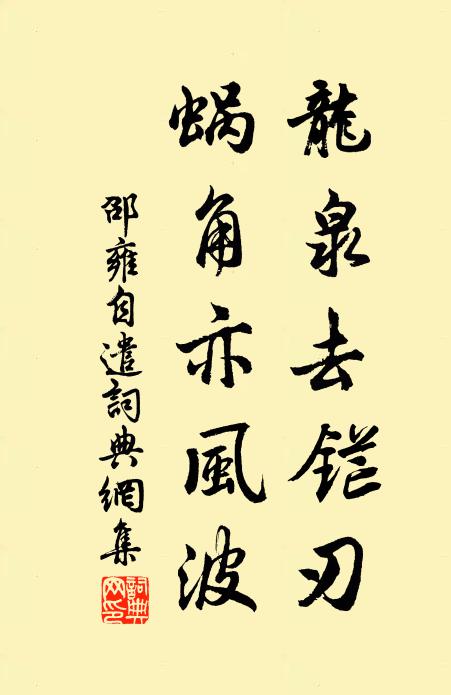 龍泉去鋩刃
蝸角亦風波
邵雍自遣詞典網集
詞典網印